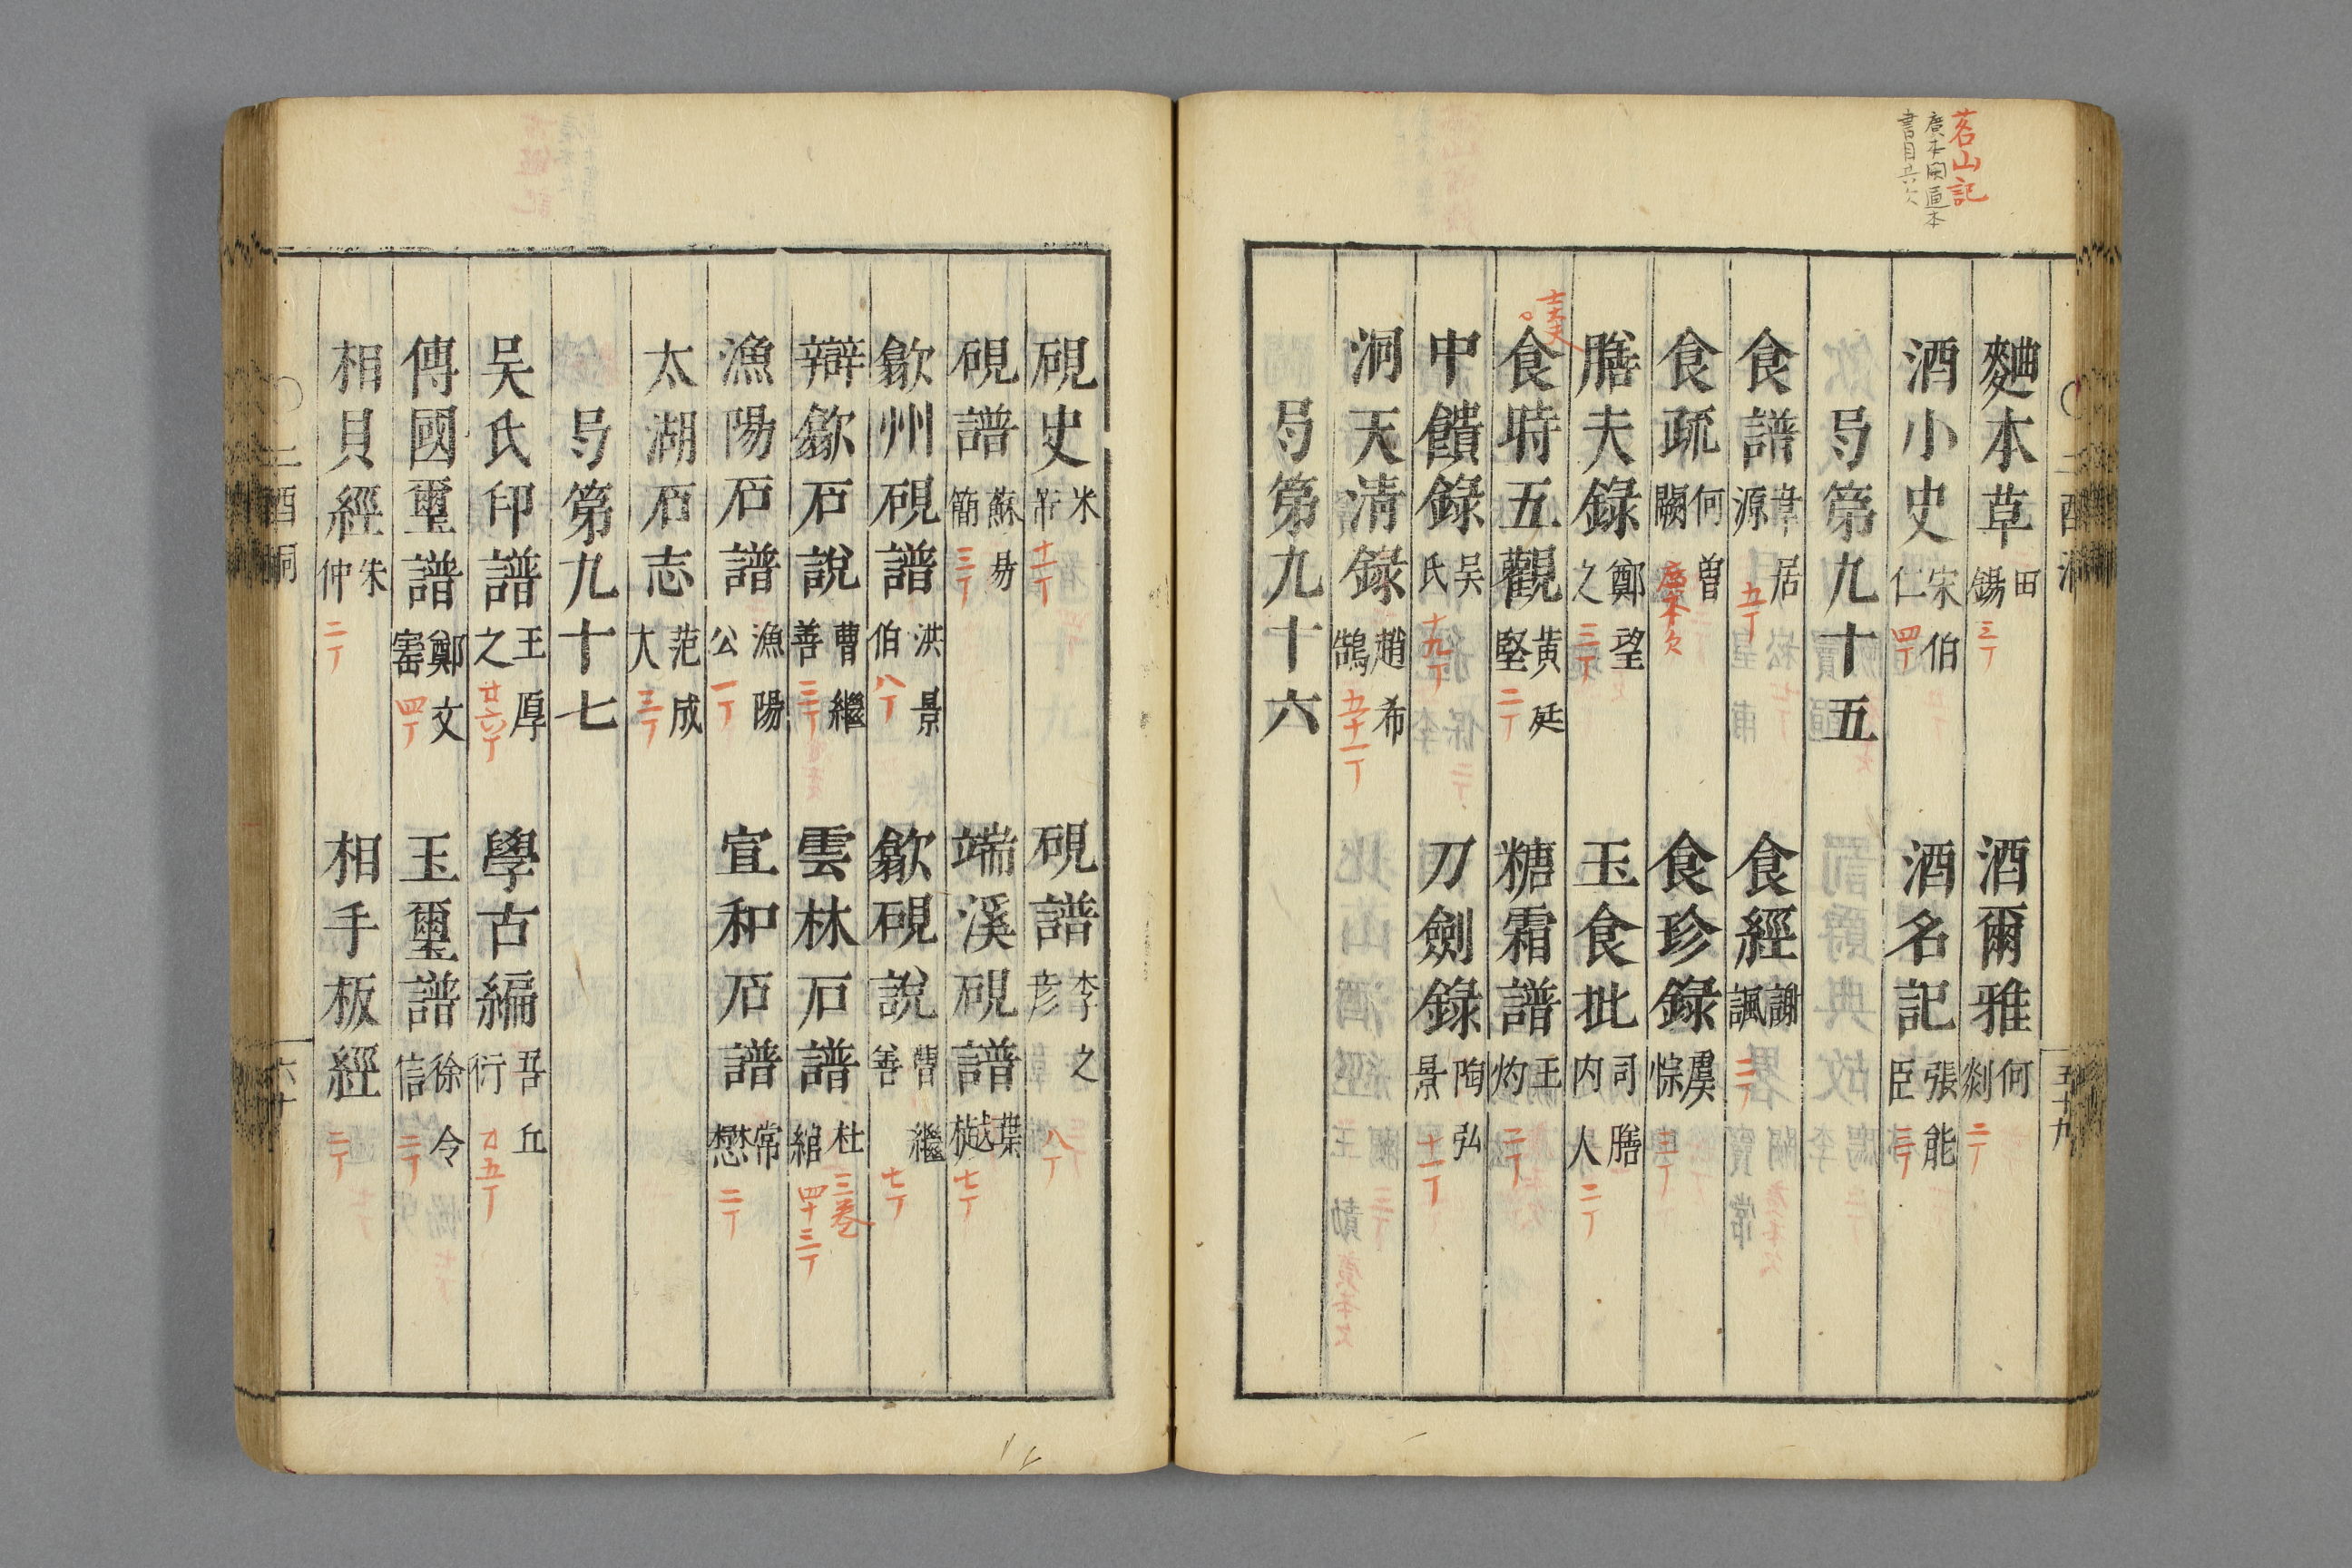 茗山記
廣本闕
書目
麯本草 田錫 三丁
酒爾雅 何剡 二丁
酒小史 宋伯仁 四丁
酒名記 張能臣 三丁
弓第九十五
食譜 韋居源 五丁
食經 謝諷 二丁
食疏 何曽闕 廣本欠
食珍錄 虞悰 二丁
膳夫錄 鄭望之 三丁
玉食批 司膳内人 二丁
士大夫
食時五觀 黃庭堅 二丁
糖霜譜 王灼 二丁
中饋錄 吳氏 十九丁
刀劍錄 陶弘景 十一丁
洞天清錄 趙希鵠 五十一丁
弓第九十六
五十九
硯史 米芾 十一丁
硯譜 李之彦 八丁
硯譜 蘇易簡 三丁
端溪硯譜 葉樾 七丁
歙州硯譜 洪景伯 八丁
歙硯說 曹繼善 七丁
辯歙石說 曹繼善 三丁
雲林石譜 杜綰 三卷 四十三丁
漁陽石譜 漁陽公 一丁
宣和石譜 常懋 二丁
太湖石志 范成大 三丁
弓第九十七
吳氏印譜 王厚之 廿六丁
學古編 吾丘衍 廿五丁
傳國璽譜 鄭文寶 四丁
玉璽譜 徐令信 二丁
相貝經 朱仲 二丁
相手板經 二丁
六十